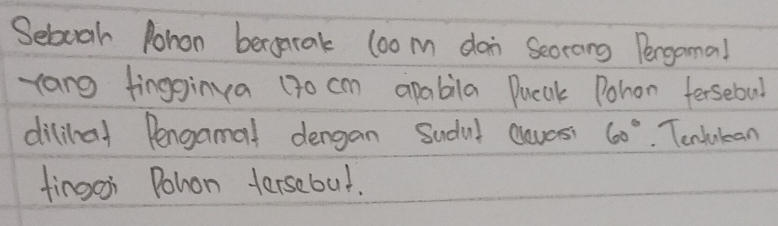 Sebuah Pohon berjarak 100 m dari Seorang Pengamat
yang tingginya 170 cm apabila Pucuk Pohon tersebut
dilihat Pengamat dengan Sudut elevasi 60°. Tentukan
tinggi Pohon tersebut.